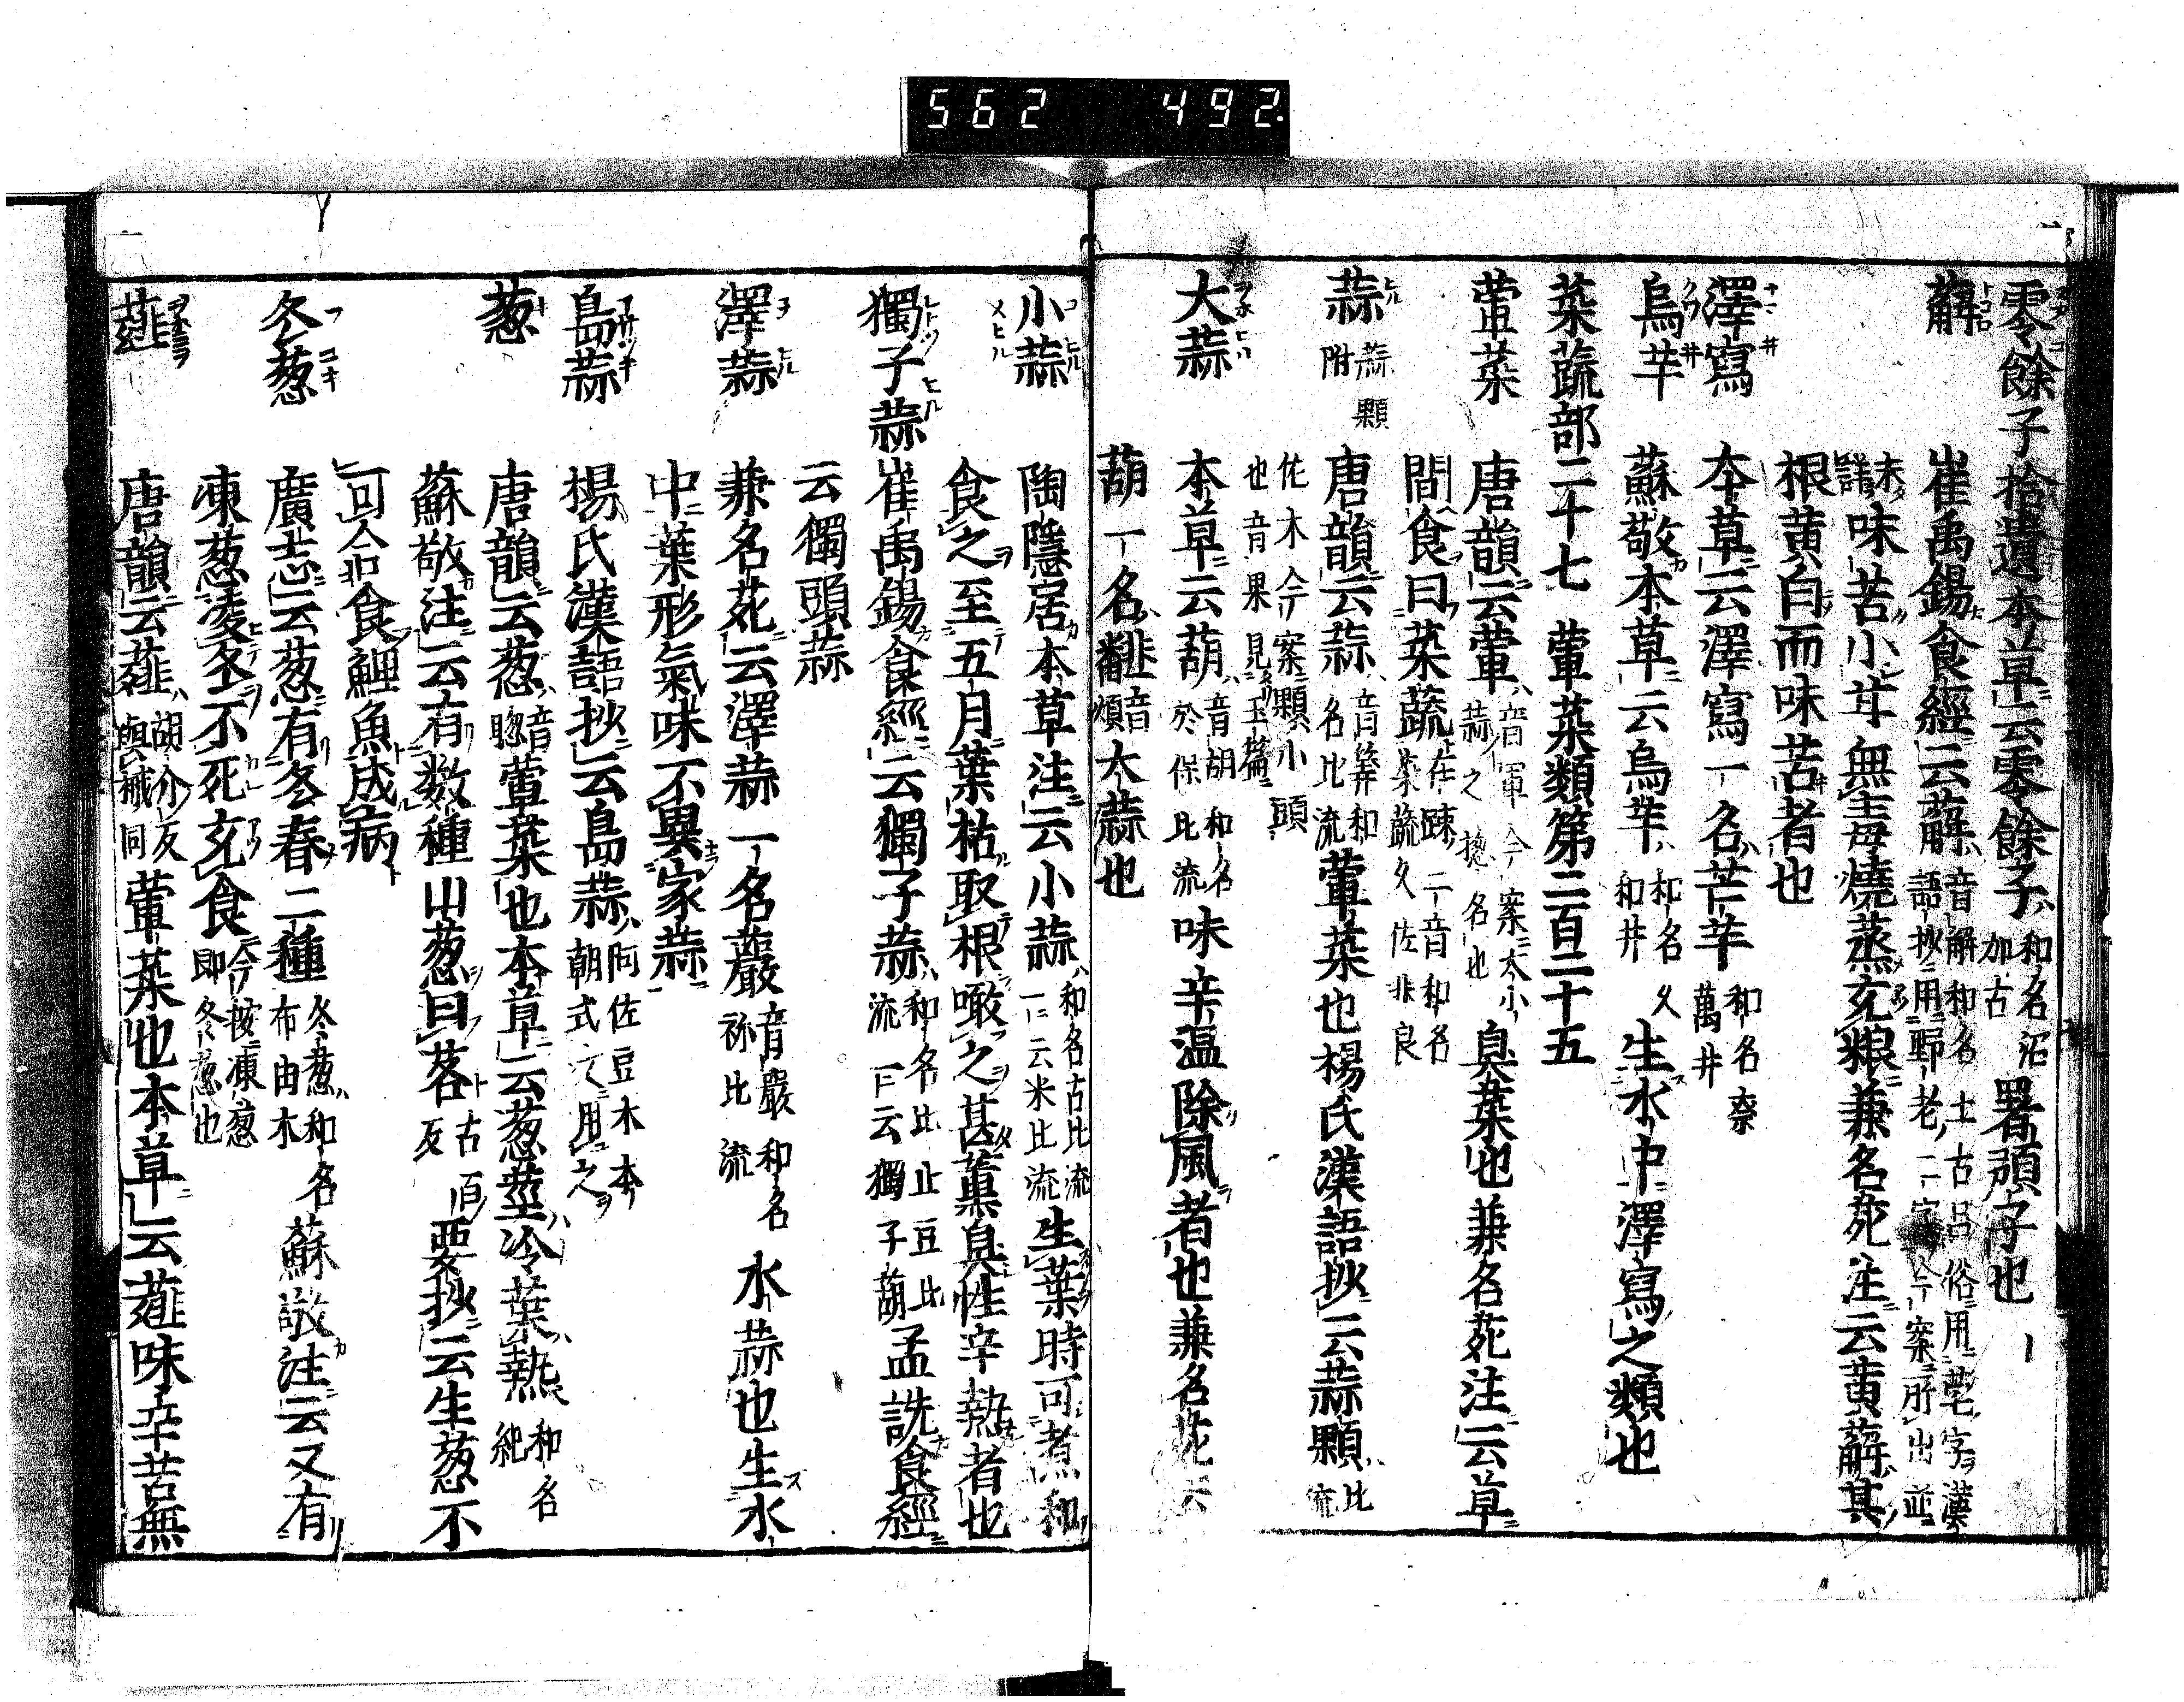 562 492.
零餘子 拾遺本草云零餘子 和名沼加古 署預子也
薢 崔禹錫食經云薢 音解和名土古呂俗用𦯉字漢語抄用野老二字今案所出並未詳
味苦小甘無毒燒蒸充粮兼名苑注云黄薢其
根黄白而味苦者也
澤寫 本草云澤寫一名芒芋 和名奈萬井
烏芋 蘇敬本草云烏芋 和名久和井 生水中澤寫之類也
菜蔬部二十七 葷菜類第二百二十五
葷菜 唐韻云葷 音軍今案大小蒜之惣名也 臭菜也兼名苑注云草
間食曰菜蔬 在疎二音和名菜蔬久佐非良
蒜 蒜顆附 唐韻云蒜 音算和名比流 葷菜也楊氏漢語抄云蒜顆 比流
佐木今案顆小頭也音果見玉篇
大蒜 本草云葫 音胡和名於保比流 味辛温除風者也兼名苑云
葫一名𩐏 音煩 大蒜也
小蒜 陶隱居本草注云小蒜 和名古比流一云米比流 生葉時可煮和
食之至五月葉枯取根噉之甚薫臭性辛熱者也
獨子蒜 崔禹錫食經云獨子蒜 和名比止豆比流一云獨子葫 孟詵食經
云獨頭蒜
澤蒜 兼名苑云澤蒜一名䕾 音嚴和名祢比流 水蒜也生水
中葉形氣味不異家蒜
島蒜 楊氏漢語抄云島蒜 阿佐豆木本朝式文用之
葱 唐韻云葱 音聦 葷菜也本草云葱莖冷葉熱 和名紀
蘇敬注云有数種山葱曰茖 古百反 要抄云生葱不
可合食鯉魚成病
冬葱 廣志云葱有冬春二種 冬葱和名布由木 蘇敬注云又有
凍葱凌冬不死充食 今按凍葱即冬葱也
薤 唐韻云薤 胡介反與械同 葷菜也本草云薤味辛苦無